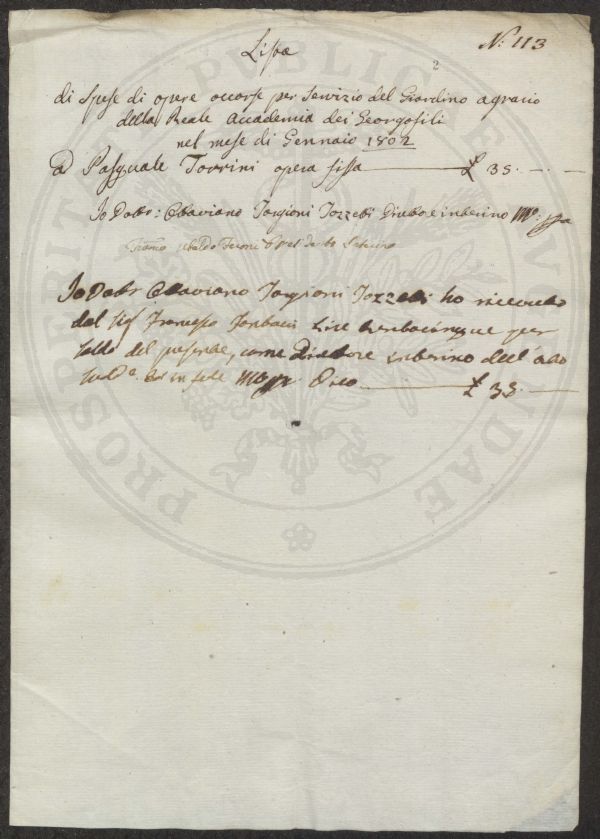 N: 113
Lista
di Spese di opere occorse per Servizio del Giardino agrario
della Reale Accademia dei Georgofili
nel mese di Gennaio 1802
A Pasquale Torrini opera fissa £ 35. - -
Io Dottr: Ottaviano Targioni Tozzetti Direttore interino Mo: ppa
Io Dottr Ottaviano Targioni Tozzetti ho ricevuto
dal Sigr Francesco lire trentacinque per
saldo del presente, come Direttore interino dell'
in fede Mo ppa Dico £ 35. -
PROSPERITATI PUBLICAE AUGENDAE